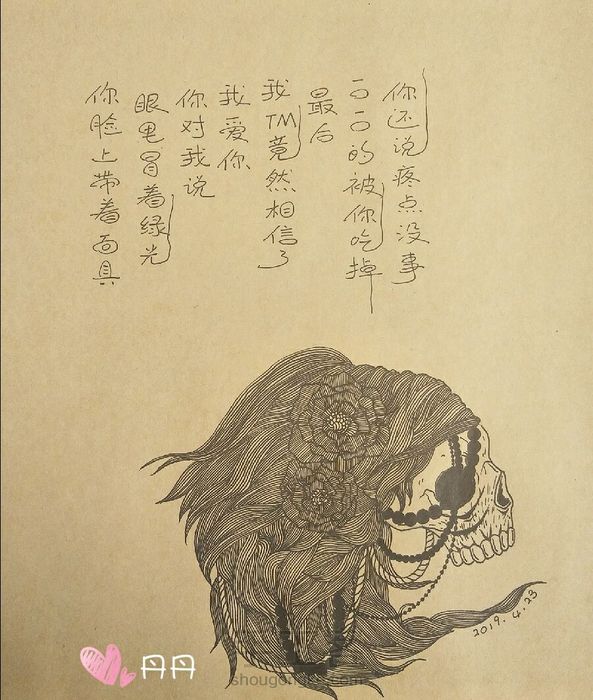 你脸上带着面具
眼里冒着绿光
你对我说
我爱你
我TM竟然相信了
最后
一口一口的被你吃掉
你还说疼点没事
2019.4.23
丹丹